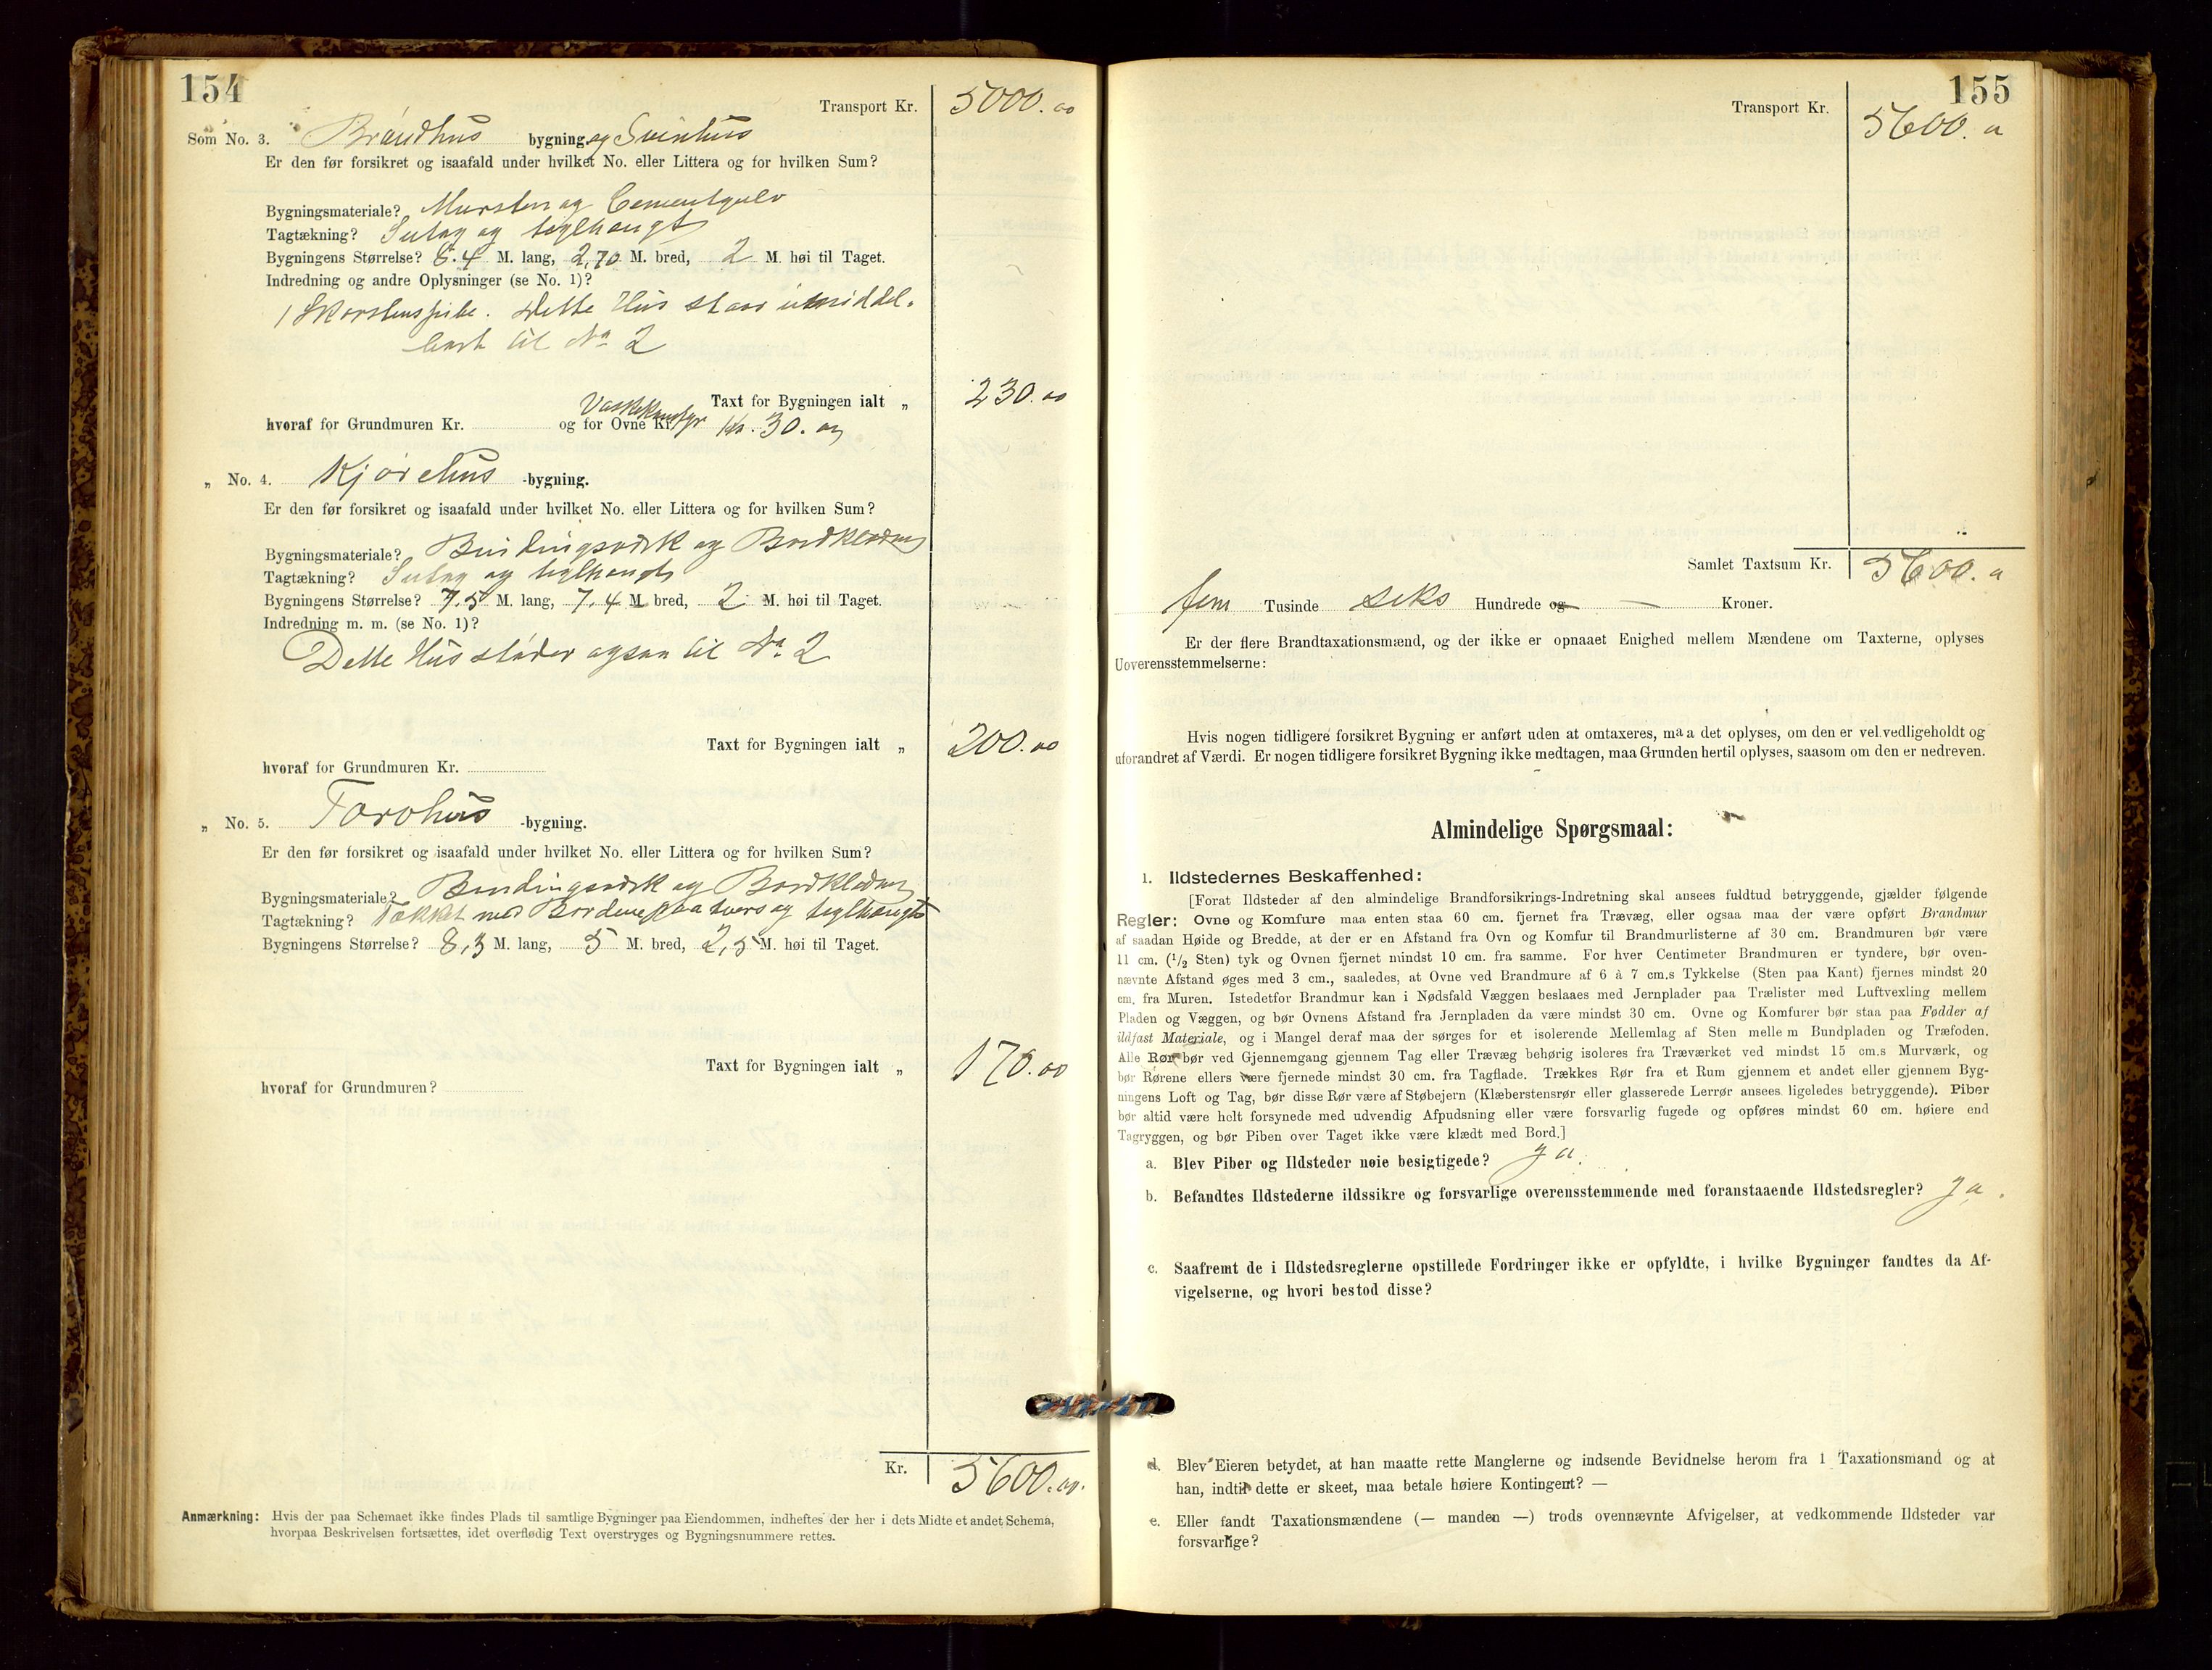 154
Transport Kr. 5000.00
Som No. 3. Brándhus bygning. og Svinhus
Er den før forsikret og isaafald under hvilket No. eller Littera og for hvilken Sum?
Bygningsmateriale? Mursten og Cementgulv
Tagtækning? Sutag og teglhængt
Bygningens Størrelse? 8.4 M. lang, 2,70 M. bred, 2 M. høi til Taget.
Indredning og andre Oplysninger (se No. 1)?
1 Skorstenspibe. Dette Hus staar umiddel-
bart til No 2
Taxt for Bygningen ialt „ 230.00
hvoraf for Grundmuren Kr. og for Ovne Kr. Kr. 30.00
„ No. 4. Kjørehus -bygning.
Er den før forsikret og isaafald under hvilket No. eller Littera og for hvilken Sum?
Bygningsmateriale? Bindingsværk og Bordklædning
Tagtækning? Sutag og teglhængt
Bygningens Størrelse? 7.5 M. lang, 7.4 M. bred, 2 M. høi til Taget.
Indredning m. m. (se No. 1)?
Dette Hus støder ogsaa til No 2
Taxt for Bygningen ialt „ 200.00
hvoraf for Grundmuren Kr.
„ No. 5. Torvhus -bygning.
Er den før forsikret og isaafald under hvilket No. eller Littera og for hvilken Sum?
Bygningsmateriale? Bindingsværk og Bordklædning
Tagtækning? Tækket med Bordene paa tvers og teglhængt
Bygningens Størrelse? 8,3 M. lang, 5 M. bred, 2,5 M. høi til Taget.
Taxt for Bygningen ialt „ 170.00
hvoraf for Grundmuren?
Kr. 5600.00.
Anmærkning: Hvis der paa Schemaet ikke findes Plads til samtlige Bygninger paa Eiendommen, indheftes der her i dets Midte et andet Schema,
hvorpaa Beskrivelsen fortsættes, idet overflødig Text overstryges og Bygningsnummere rettes.
155
Transport Kr. 5600.
Samlet Taxtsum Kr. 5600.
fem Tusinde seks Hundrede og — Kroner.
Er der flere Brandtaxationsmænd, og der ikke er opnaaet Enighed mellem Mændene om Taxterne, oplyses
Uoverensstemmelserne:
Hvis nogen tidligere forsikret Bygning er anført uden at omtaxeres, maa det oplyses, om den er vel vedligeholdt og
uforandret af Værdi. Er nogen tidligere forsikret Bygning ikke medtagen, maa Grunden hertil oplyses, saasom om den er nedreven.
Almindelige Spørgsmaal:
1. Ildstedernes Beskaffenhed:
[Forat Ildsteder af den almindelige Brandforsikrings-Indretning skal ansees fuldtud betryggende, gjælder følgende
Regler: Ovne og Komfure maa enten staa 60 cm. fjernet fra Trævæg, eller ogsaa maa der være opført Brandmur
af saadan Høide og Bredde, at der er en Afstand fra Ovn og Komfur til Brandmurlisterne af 30 cm. Brandmuren bør være
11 cm. (1/2 Sten) tyk og Ovnen fjernet mindst 10 cm. fra samme. For hver Centimeter Brandmuren er tyndere, bør oven-
nævnte Afstand øges med 3 cm., saaledes, at Ovne ved Brandmure af 6 à 7 cm.s Tykkelse (Sten paa Kant) fjernes mindst 20
cm. fra Muren. Istedetfor Brandmur kan i Nødsfald Væggen beslaaes med Jernplader paa Trælister med Luftvexling mellem
Pladen og Væggen, og bør Ovnens Afstand fra Jernpladen da være mindst 30 cm. Ovne og Komfurer bør staa paa Fødder af
ildfast Materiale, og i Mangel deraf maa der sørges for et isolerende Mellemlag af Sten mellem Bundpladen og Træfoden.
Alle Rør bør ved Gjennemgang gjennem Tag eller Trævæg behørig isoleres fra Træværket ved mindst 15 cm.s Murværk, og
bør Rørene ellers være fjernede mindst 30 cm. fra Tagflade. Trækkes Rør fra et Rum gjennem et andet eller gjennem Byg-
ningens Loft og Tag, bør disse Rør være af Støbejern (Klæberstensrør eller glasserede Lerrør ansees ligeledes betryggende). Piber
bør altid være helt forsynede med udvendig Afpudsning eller være forsvarlig fugede og opføres mindst 60 cm. høiere end
Tagryggen, og bør Piben over Taget ikke være klædt med Bord.]
a. Blev Piber og Ildsteder nøie besigtigede? Ja.
b. Befandtes Ildstederne ildssikre og forsvarlige overensstemmende med foranstaaende Ildstedsregler? Ja.
c. Saafremt de i Ildstedsreglerne opstillede Fordringer ikke er opfyldte, i hvilke Bygninger fandtes da Af-
vigelserne, og hvori bestod disse?
d. Blev Eieren betydet, at han maatte rette Manglerne og indsende Bevidnelse herom fra 1 Taxationsmand og at
han, indtil dette er skeet, maa betale høiere Kontingent? —
e. Eller fandt Taxationsmændene (— manden —) trods ovennævnte Afvigelser, at vedkommende Ildsteder var
forsvarlige?